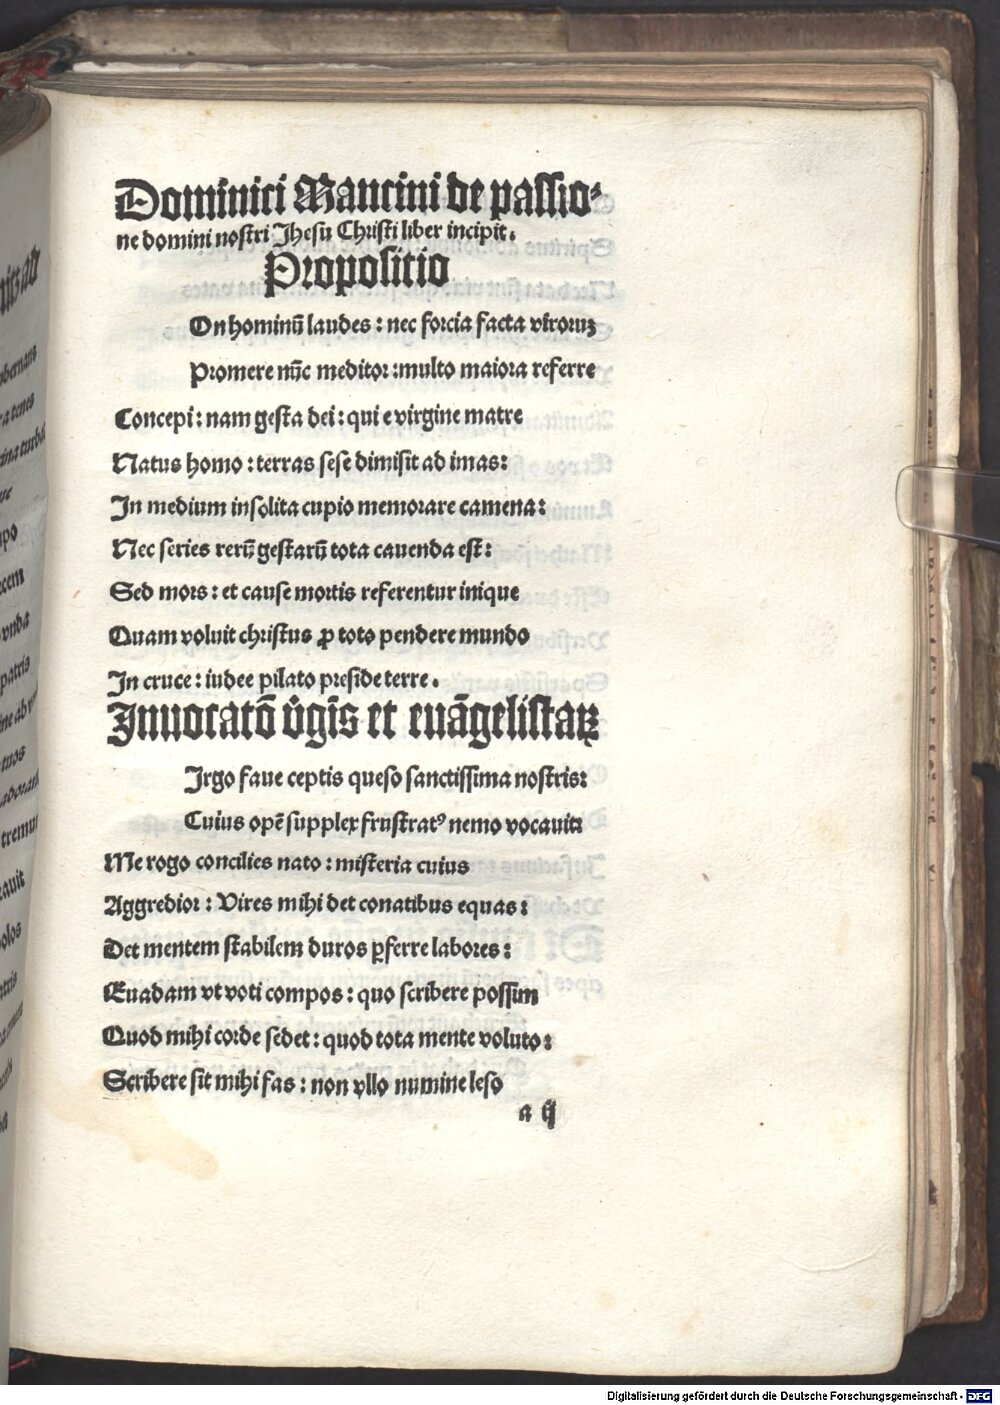 Dominici Mancini de passio⸗
ne domini nostri Jhesu Christi liber incipit.
Propositio
On hominū laudes : nec forcia facta viroruꝫ
Promere nūc meditor : multo maiora referre
Concepi : nam gesta dei : qui e virgine matre
Natus homo : terras sese dimisit ad imas :
In medium insolita cupio memorare camena :
Nec series rerū gestarū tota canenda est :
Sed mors : et cause mortis referentur inique
Quam voluit christus ꝓ toto pendere mundo
In cruce : iudee pilato preside terre.
Inuocatō v̄gīs et euāgelistaꝝ
Irgo faue ceptis queso sanctissima nostris :
Cuius opē supplex frustratꝰ nemo vocauit :
Me rogo concilies nato : misteria cuius
Aggredior : Vires mihi det conatibus equas :
Det mentem stabilem duros ꝑferre labores :
Euadam vt voti compos : quo scribere possim
Quod mihi corde sedet : quod tota mente voluto :
Scribere sit mihi fas : non vllo numine leso
a ij
Digitalisierung gefördert durch die Deutsche Forschungsgemeinschaft - DFG